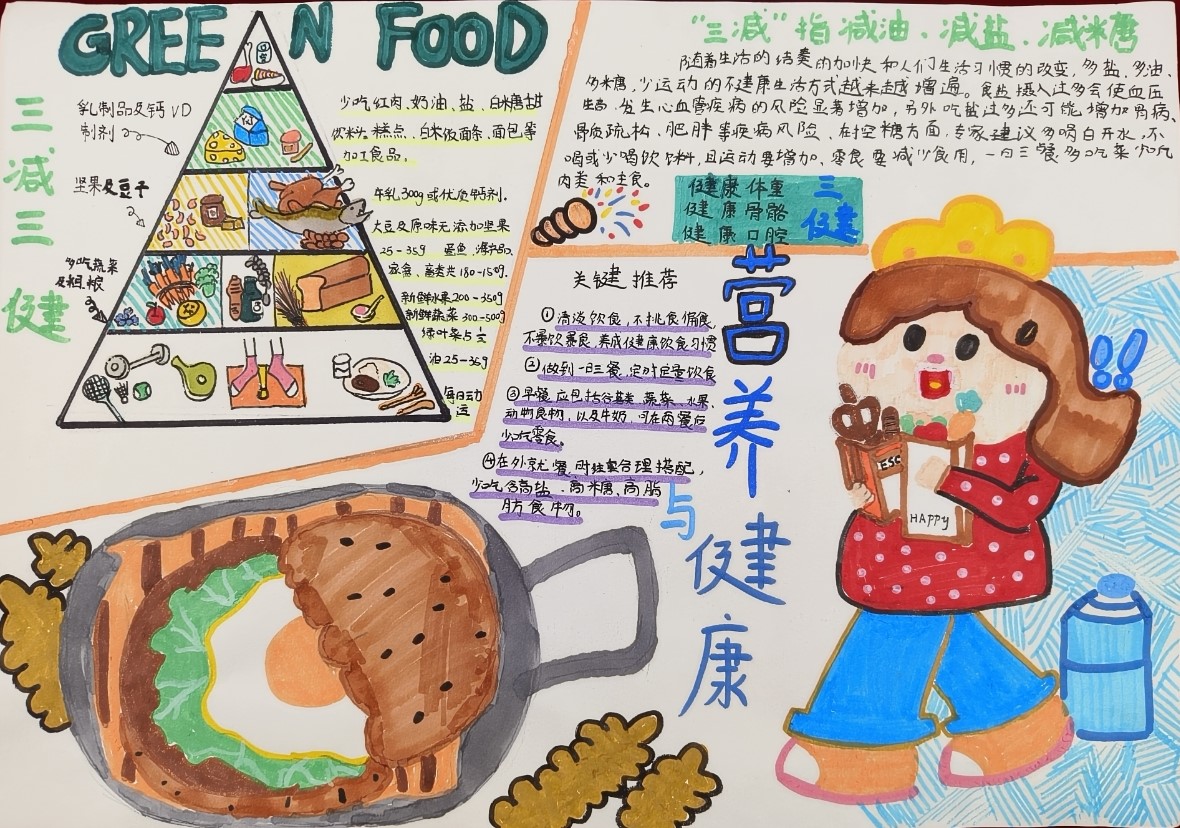 GREEN FOOD
三减三健
乳制品及钙VD
制剂
坚果及豆子
多吃蔬菜
及粗粮
少吃红肉、奶油、盐、白米糖甜
饮米分糕点、白米饭面条、面包等
加工食品。
牛乳300g或优质钙剂.
大豆及原味无添加坚果
25-35g 蛋鱼、海产品
家禽、蓄类共180-150g.
新鲜水果200-350g
新鲜蔬菜300-500g
绿叶菜占½
油25-35g
每日动
运
"三减"指减油、减盐、减糖
随着生活的结奏的加快和人们生活习惯的改变,多盐、多油、
多糖,少运动的不健康生活方式越来越增遍。食盐摄入过多会使血压
生高,发生心血管疾病的风险显著增加,另外吃盐过多还可能增加胃病、
骨质疏松、肥胖等疾病风险、在控糖方面,专家建议多喝白开水,不
喝或少喝饮料,且运动要增加、零食要减少食用,一日三餐多吃菜少吃
肉类和主食。
健康体重
健康骨骼
健康口腔
三健
关键推荐
①清淡饮食,不挑食偏食,
不暴饮暴食,养成健康饮食习惯
②做到一日三餐,定时定量饮食
③早餐应包括谷薯类、蔬菜、水果、
动物食物,以及牛奶,可在两餐后
少吃零食。
④在外就餐,时注重合理搭配,
少吃含高盐、高糖、高脂
肪食物。
营养与健康
ESC
HAPPY